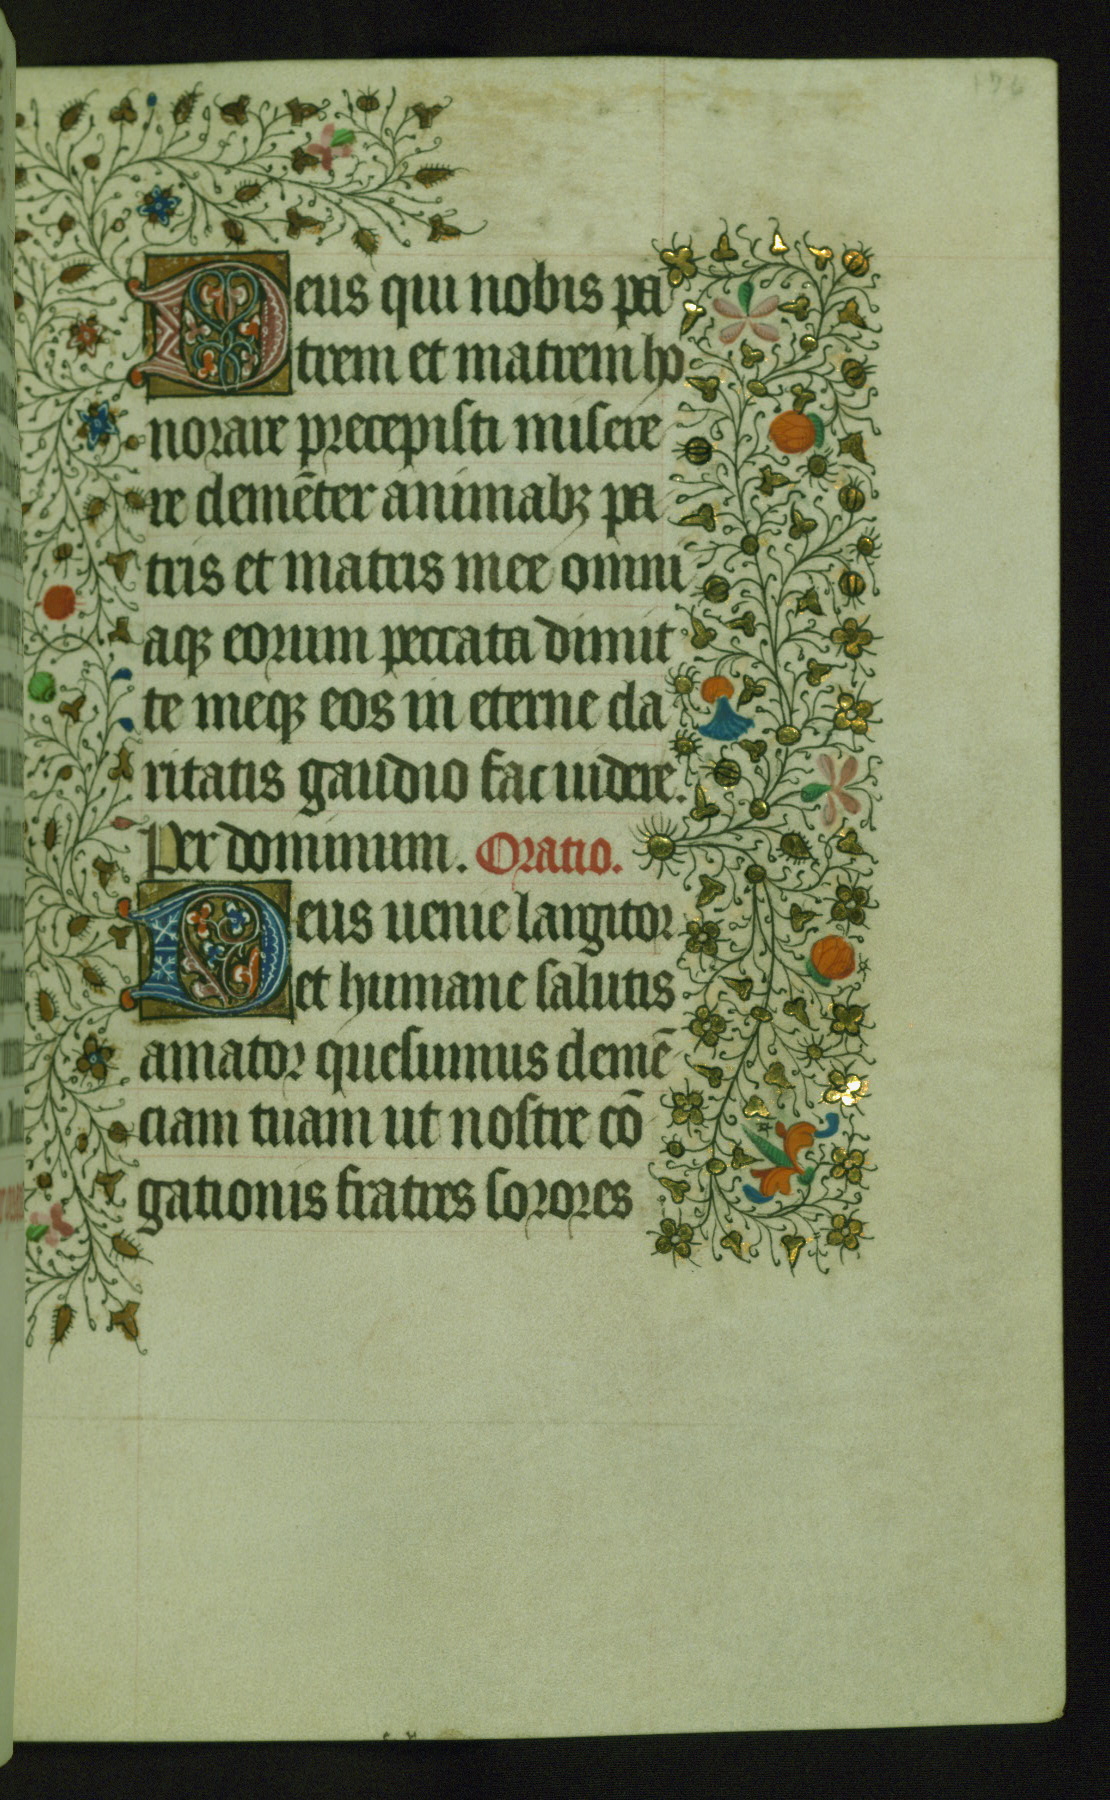 Deus qui nobis pa
trem et matrem ho
norare precepisti misere
re clemēter animabꝫ pa
tris et matris mee omni
aqꝫ eorum peccata dimit
te meqꝫ eos in eterne cla
ritatis gaudio fac uidere.
Per dominum. Oratio.
Deus uenie largitor
et humane salutis
amator quesumus clemē
ciam tuam ut nostre cō
gationis fratres sorores